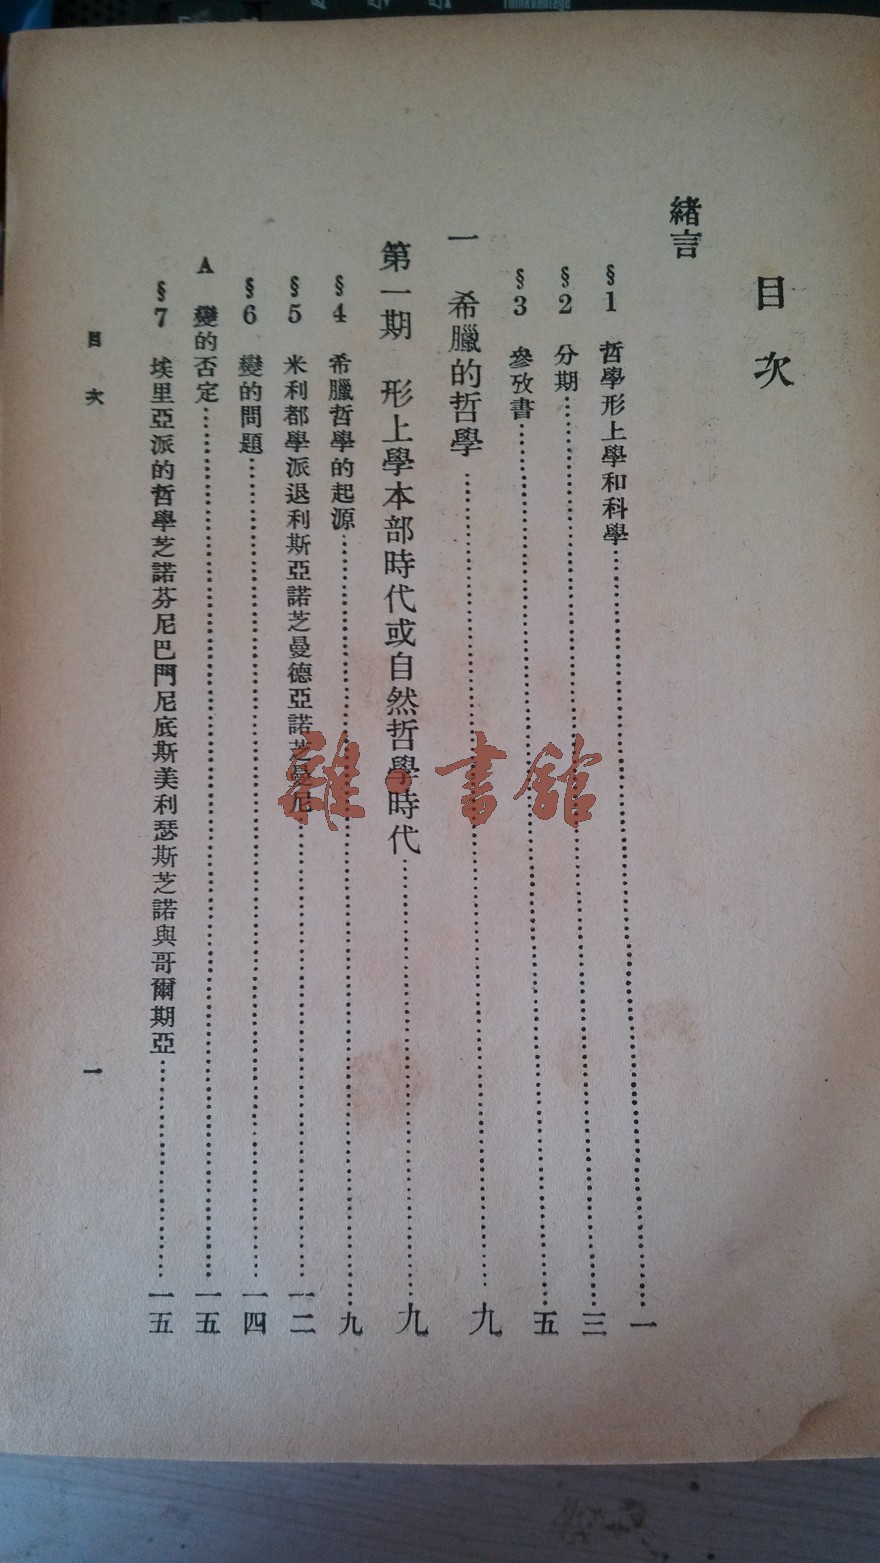 目次
緒言
§1 哲學形上學和科學……一
§2 分期……三
§3 參攷書……五
一 希臘的哲學……九
第一期 形上學本部時代或自然哲學時代……九
§4 希臘哲學的起源……九
§5 米利都學派退利斯亞諾芝曼德亞諾芝曼尼……一二
§6 變的問題……一四
A 變的否定……一五
§7 埃里亞派的哲學芝諾芬尼巴門尼底斯美利瑟斯芝諾與哥爾期亞……一五
目次
一
雜·書館
ThinkVantage